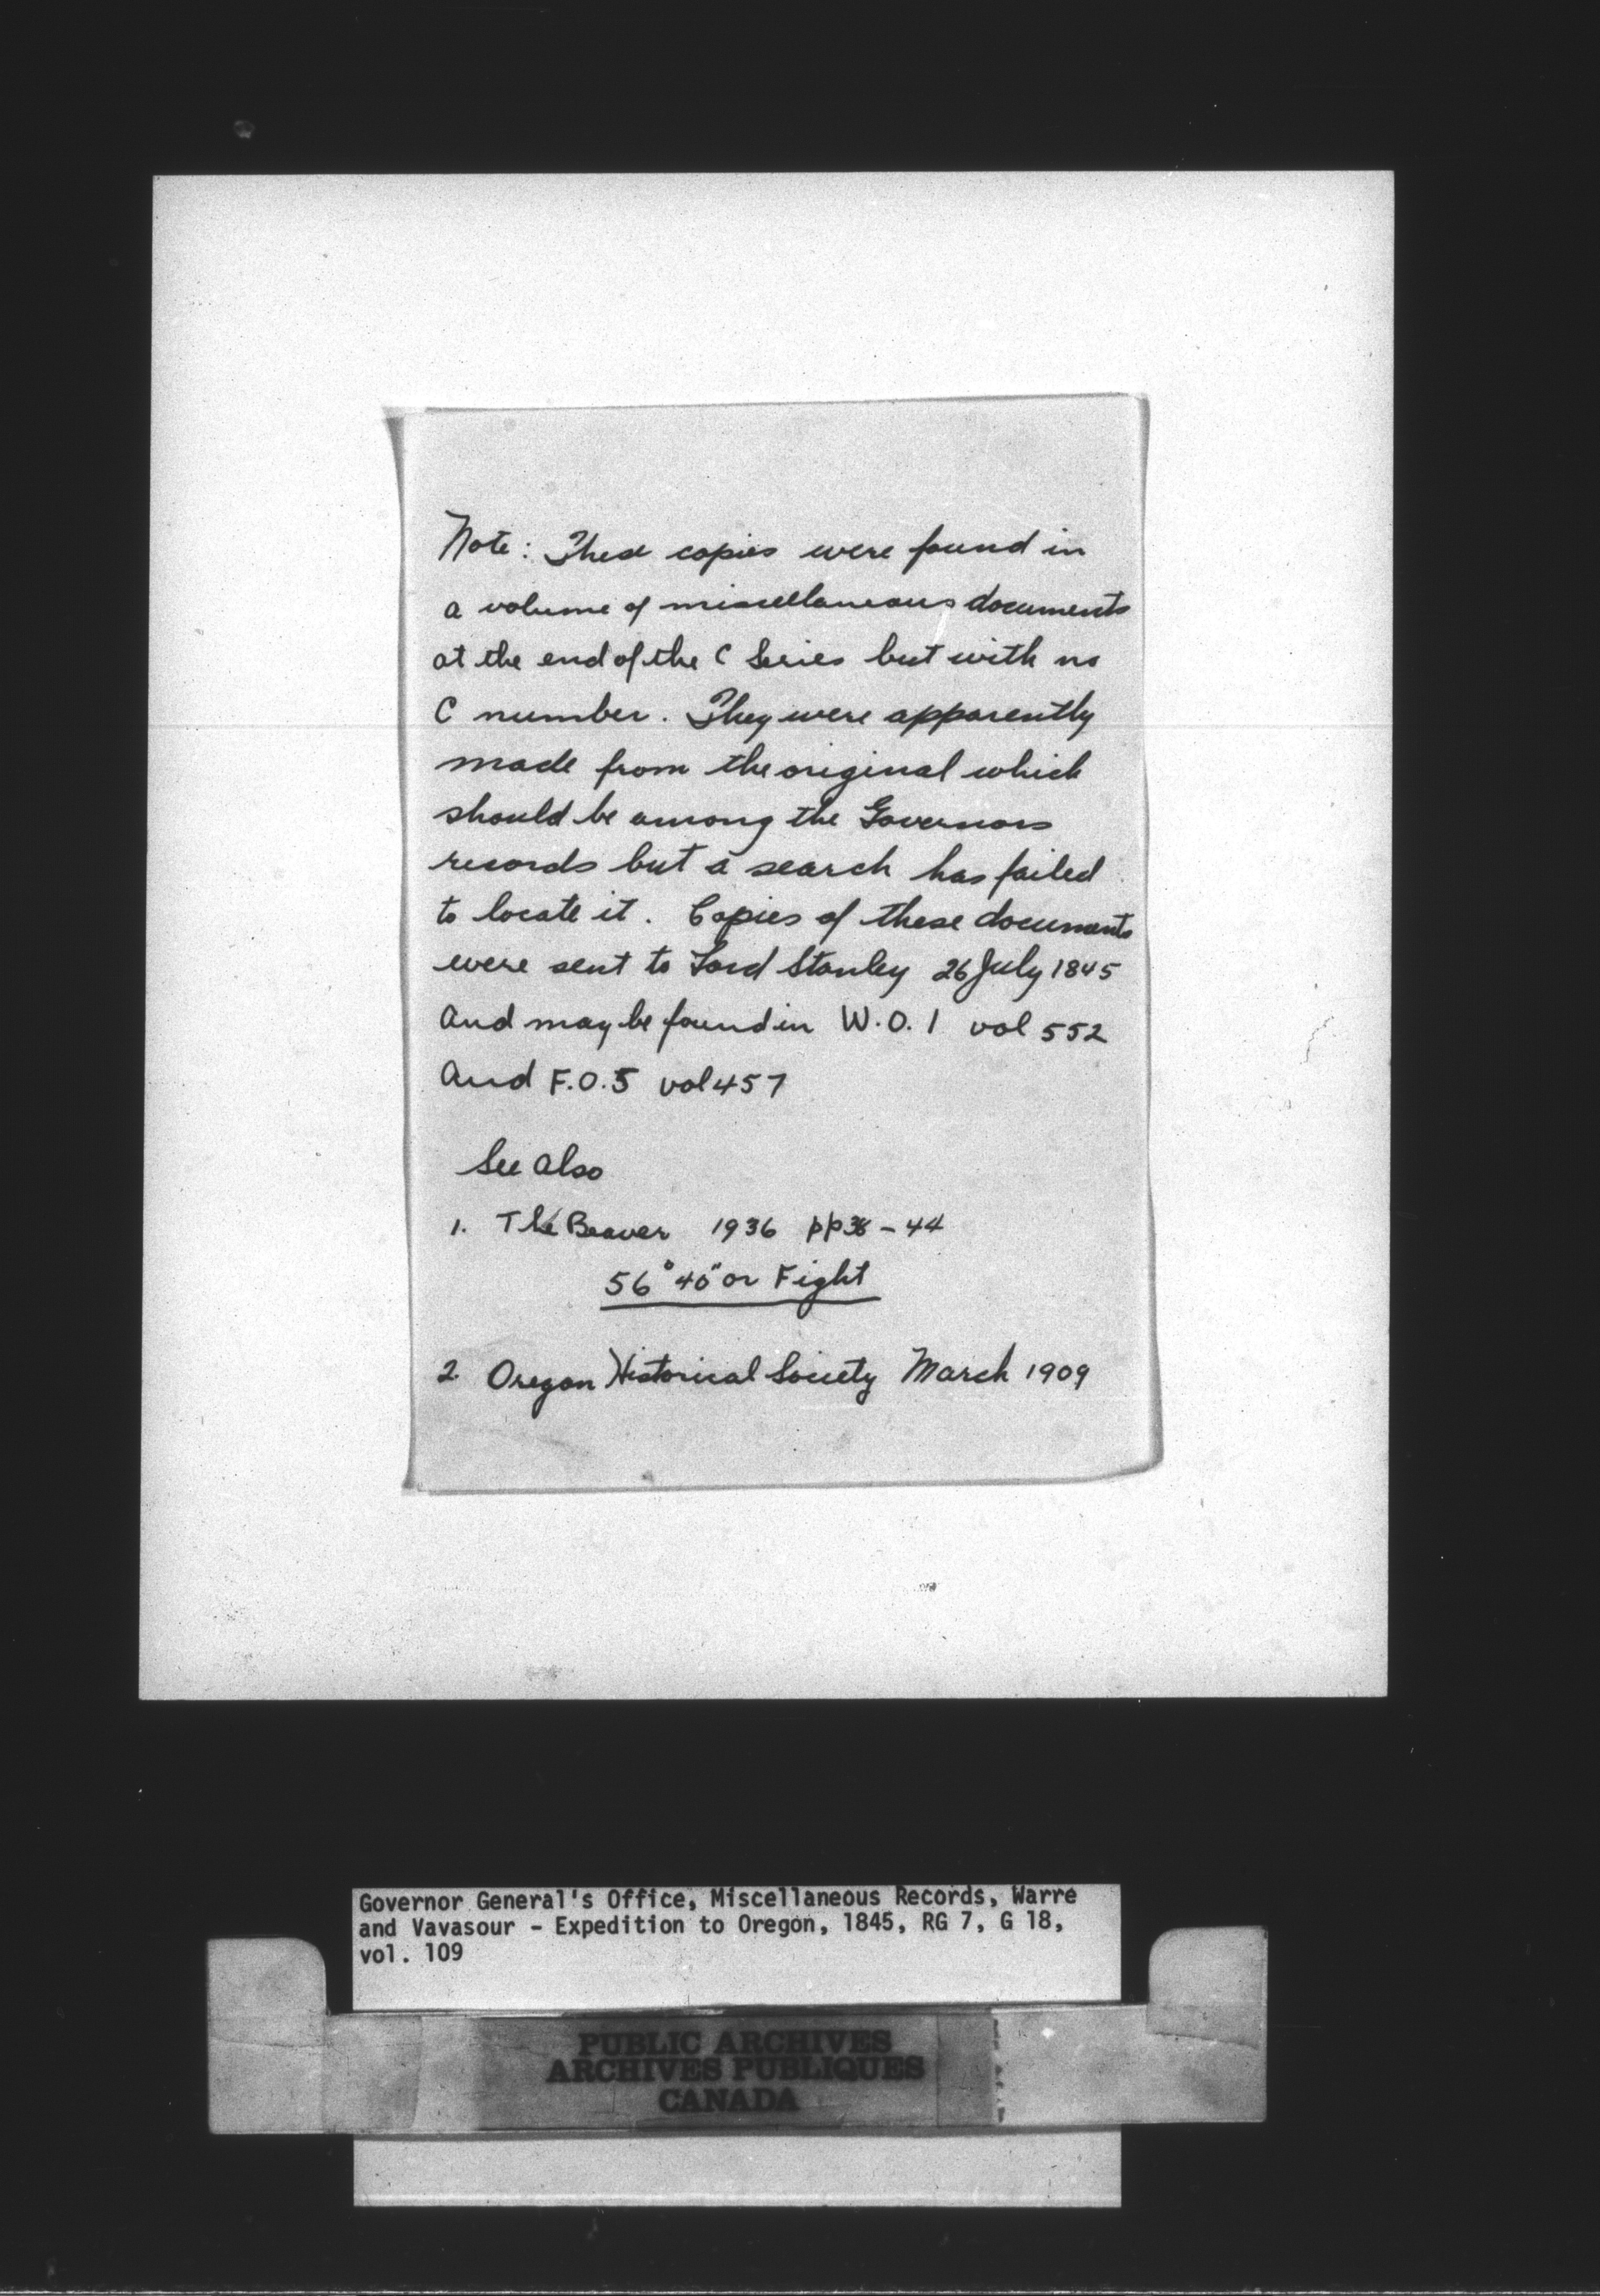 Note: These copies were found in
a volume of miscellaneous documents
at the end of the C Series but with no
C number. They were apparently
made from the original which
should be among the Governors
records but a search has failed
to locate it. Copies of these documents
were sent to Lord Stanley 26 July 1845
and may be found in W.O. 1 vol 552
and F.O. 5 vol 457
See also
1. The Beaver 1936 pp 38 - 44
56° 40" or Fight
2. Oregon Historical Society March 1909
Governor General's Office, Miscellaneous Records, Warre
and Vavasour - Expedition to Oregon, 1845, RG 7, G 18,
vol. 109
PUBLIC ARCHIVES
ARCHIVES PUBLIQUES
CANADA